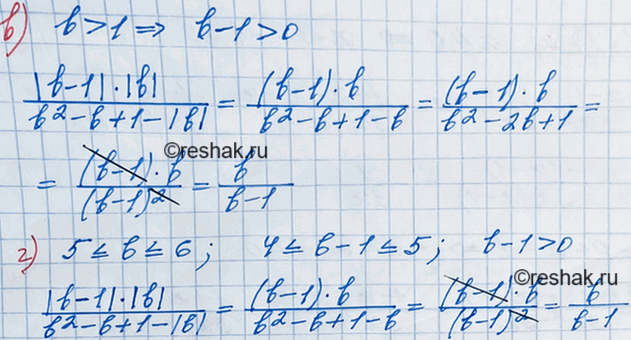 в) b>1 ⇒ b-1>0
|b-1|·|b| / b²-b+1-|b| = (b-1)·b / b²-b+1-b = (b-1)·b / b²-2b+1 =
©reshak.ru
= (b-1)·b / (b-1)² = b / b-1
г) 5≤b≤6; 4≤b-1≤5; b-1>0
©reshak.ru
|b-1|·|b| / b²-b+1-|b| = (b-1)·b / b²-b+1-b = (b-1)·b / (b-1)² = b / b-1